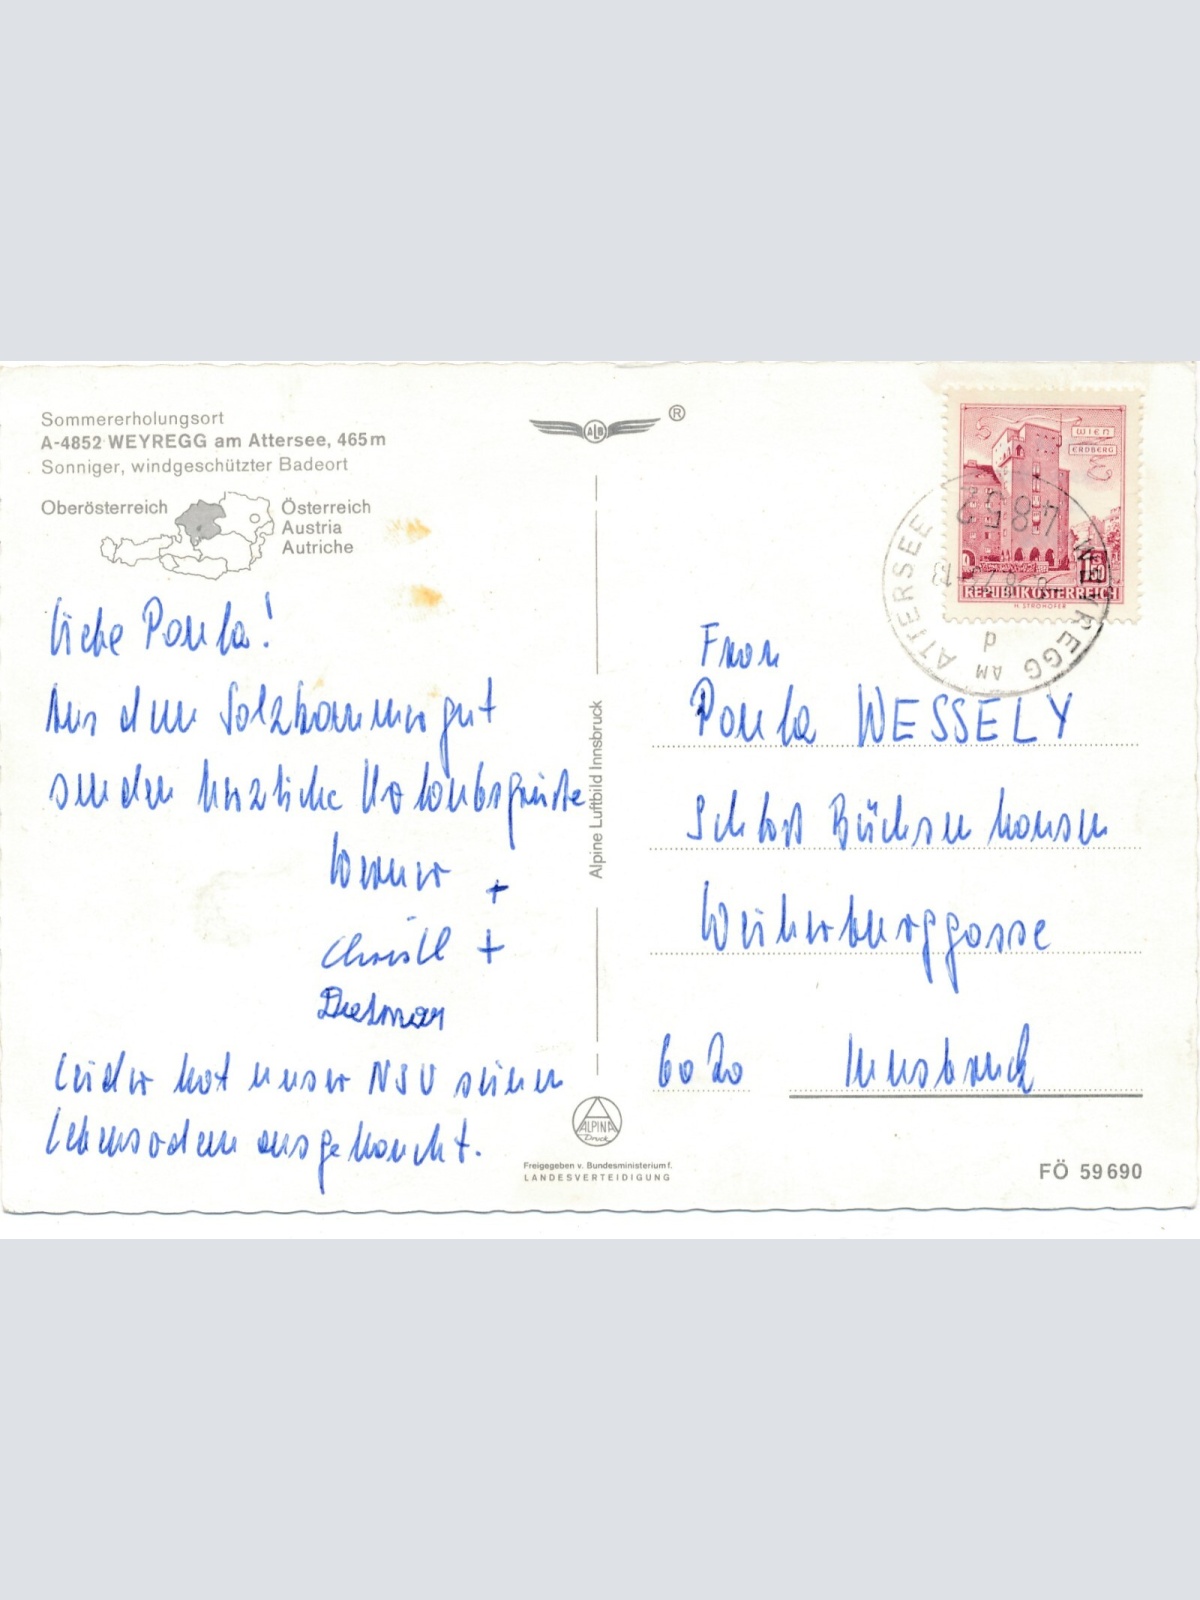 Sommererholungsort
A-4852 WEYREGG am Attersee, 465 m
Sonniger, windgeschützter Badeort
Oberösterreich
Österreich
Austria
Autriche
Liebe Paula!
Aus dem Salzkammergut
senden herzliche Urlaubsgrüße
Werner +
Christl +
Dietmar
Leider hat unser NSU seinen
Lebensodem ausgehaucht.
ALB ®
Alpine Luftbild Innsbruck
ALPINA
Druck
Freigegeben v. Bundesministerium f.
LANDESVERTEIDIGUNG
WIEN
ERDBERG
1.50
REPUBLIK ÖSTERREICH
H. STROHOFER
4852
WEYREGG AM ATTERSEE
Frau
Paula WESSELY
Schloß Büchsenhausen
Weiherburggasse
6020 Innsbruck
FÖ 59 690